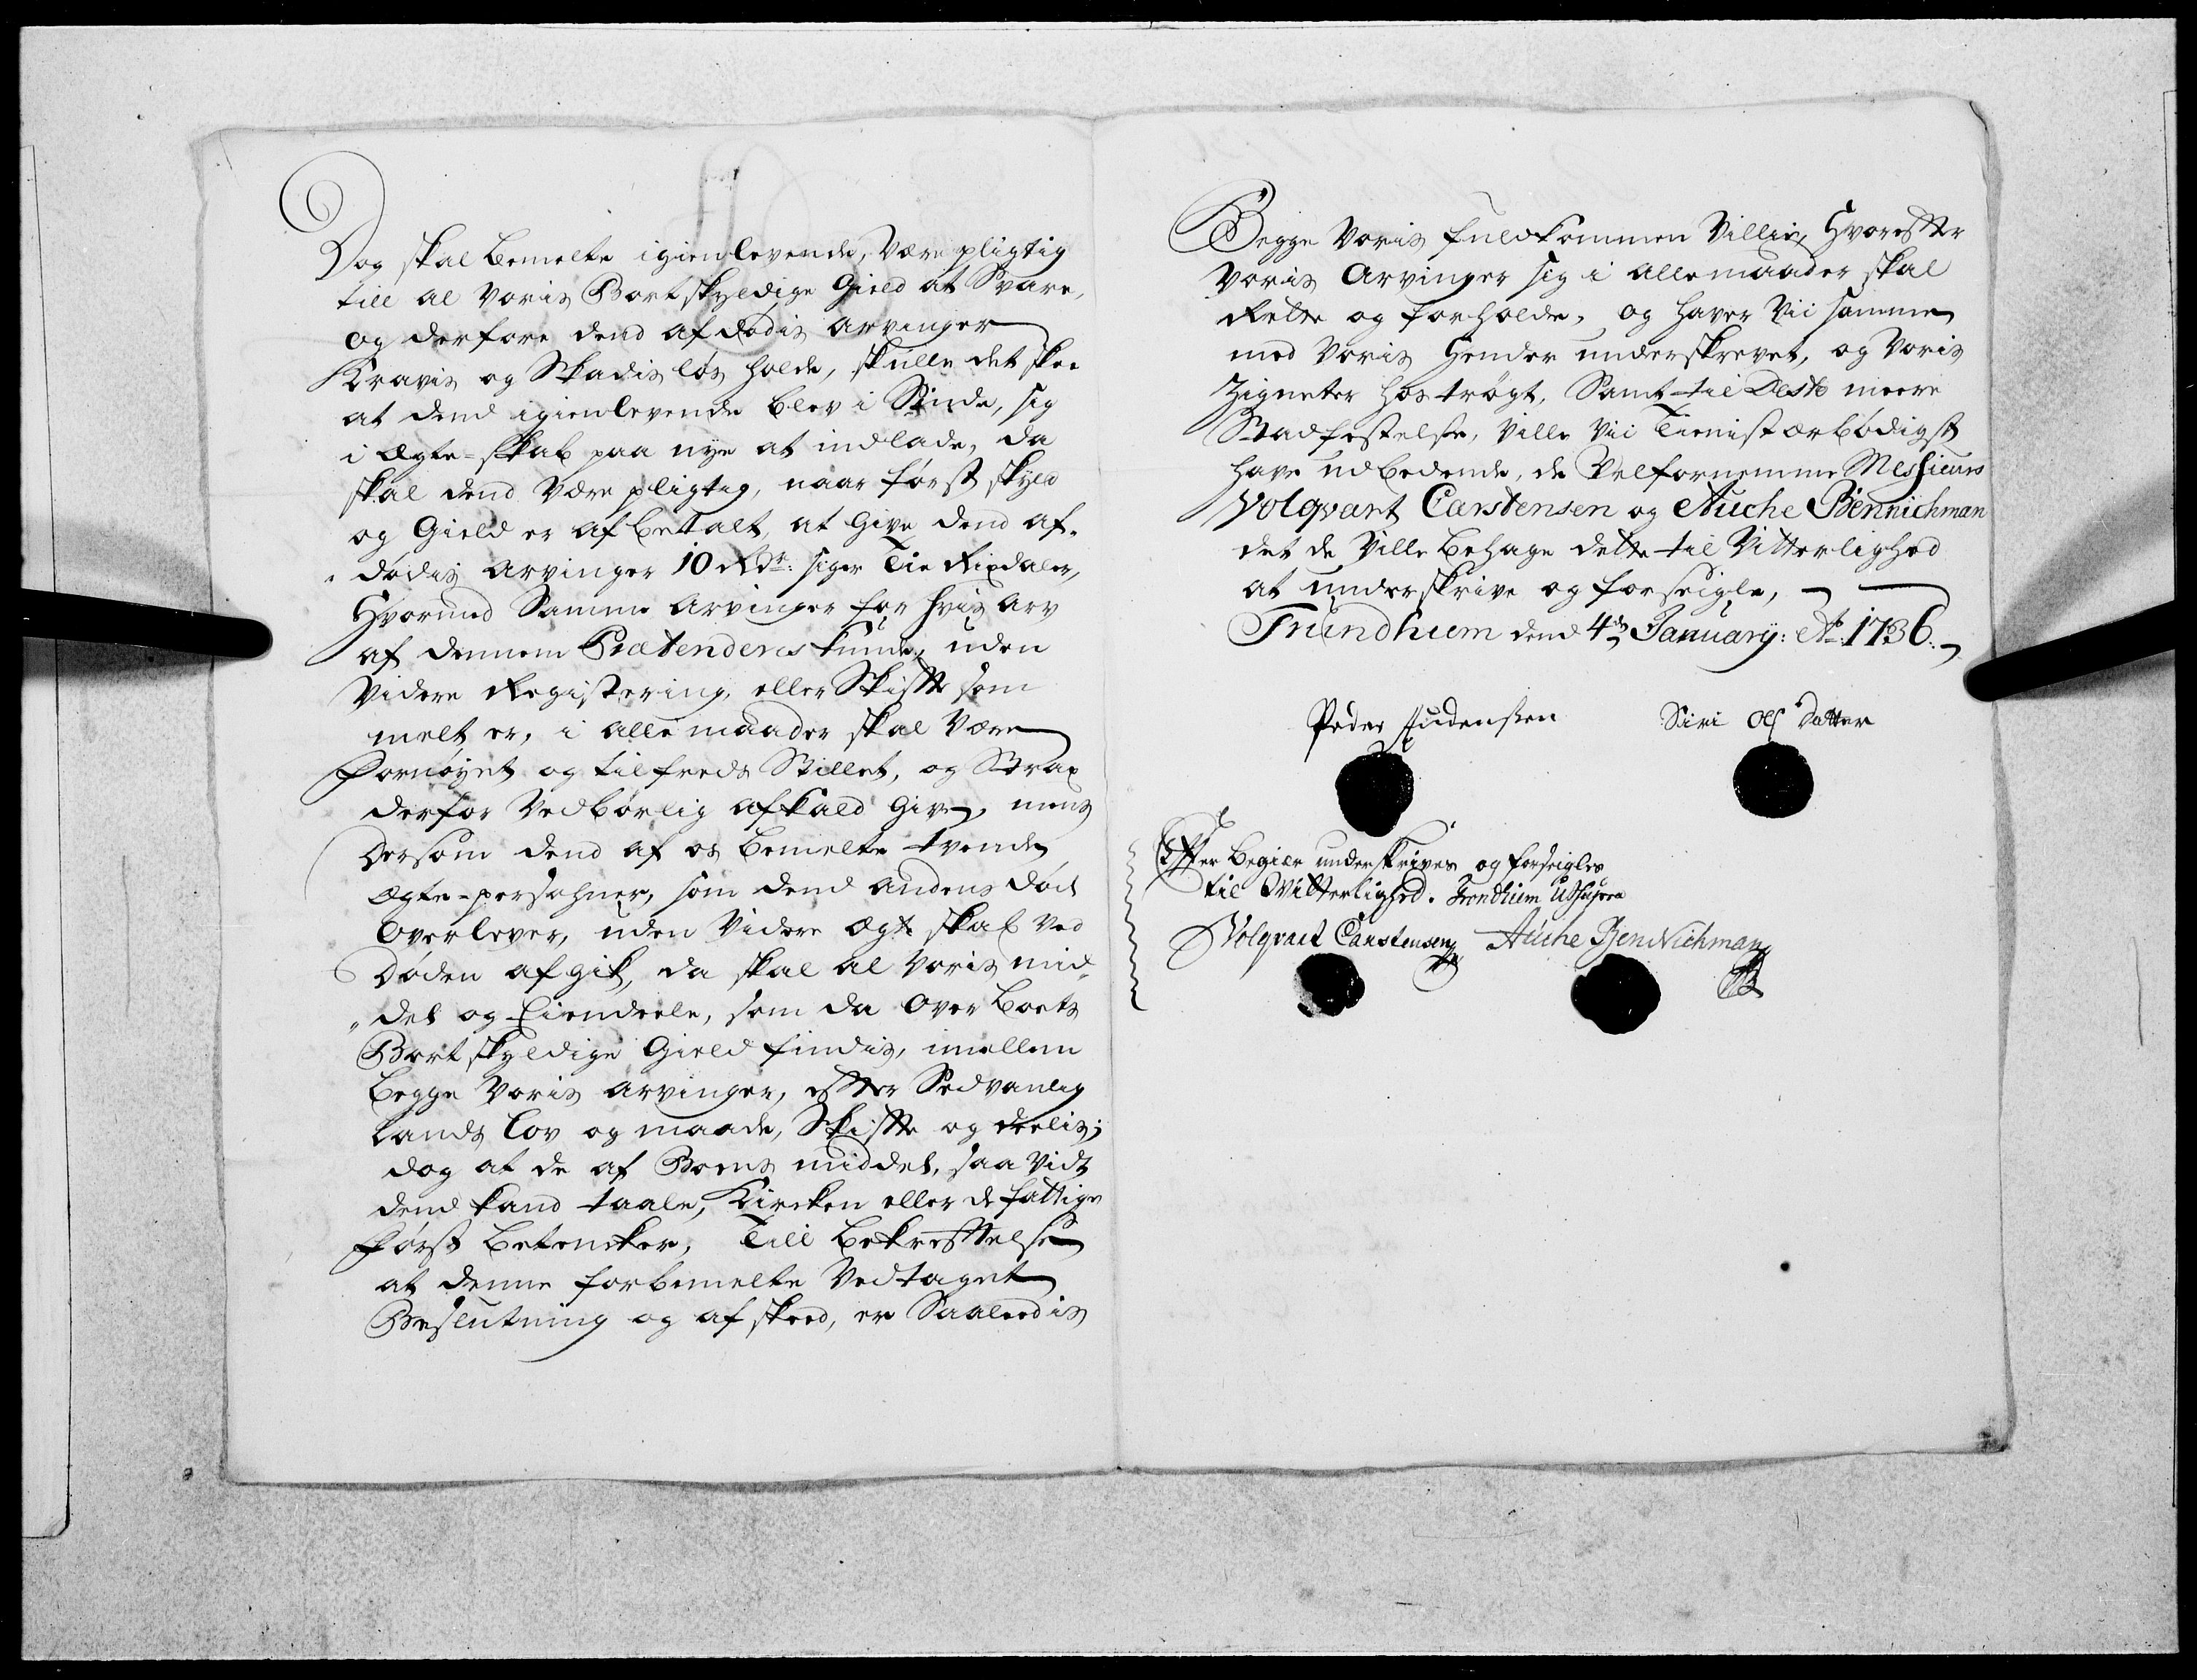 Dog skal bemelte igienlevende, Være pligtig
till al Voris Bortskyldige Gield at Svare,
og derfore dend afdødis arvinger
Kravis og Skadisløs holde, skulle det skee
at dend igienlevende blev i Sinde, sig
i Ægte-skab paa nye at indlade, da
skal dend Være pligtig, naar først skyld
og Gield er afbetalt, at Give dend af-
„dødis arvinger 10 Rdr: siger Tie Rixdaler,
Hvormed Samme arvinger for hvis arv
af dennem Prætenderes kunde, uden
Videre Registering, eller Skiftte som
melt er, i allemaader skal Være
Fornøyet og tilfreds Stillet, og Strax
derfor Vedbørlig afkald Give, mens
Dersom dend af os bemelte tvende
Ægte-persohner, som dend andens død
Overlever, uden Videre Ægteskab ved
Døden afgik, da skal al Voris mid-
„del og Eiendeele, som da Over boets
Bortskyldige Gield findis, imellem
begge Voris arvinger, eftter Sedvanlig
Lands Lov og maade, Skiftte og deelis;
dog at de af Boens middel, saa Vidt
dend kand taale, Kircken eller de fattige
Først betencker, Till bekrefttelse
at denne forbemelte Vedtagnt
Beslutning og afskeed, er Saaleedis
Begge Voris fuldkommen Villie, Hvoreftter
Voris Arvinger sig i allemaader skal
Rette og forholde, og haver Vii samme
med Voris Hender underskrevet, og Voris
Zigneter hostrøgt, Samt til Desto meere
Stadfestelse, Ville Vii Tienistærbødigst
have udbedende, de Velfornemme Messieurs
Volqvart Carstensen og Auche Bennichman
det de Ville behage dette til Vitterlighed
at underskrive og forseigle,
Trundhiem dend 4de January: Ao: 1736.
Peder Judensen Siri Ols datter
Effter begiær underskriver og forseigler
til Vitterlighed. Trondhiem ut supra
Volqvart Carstensen Auche Bennichman